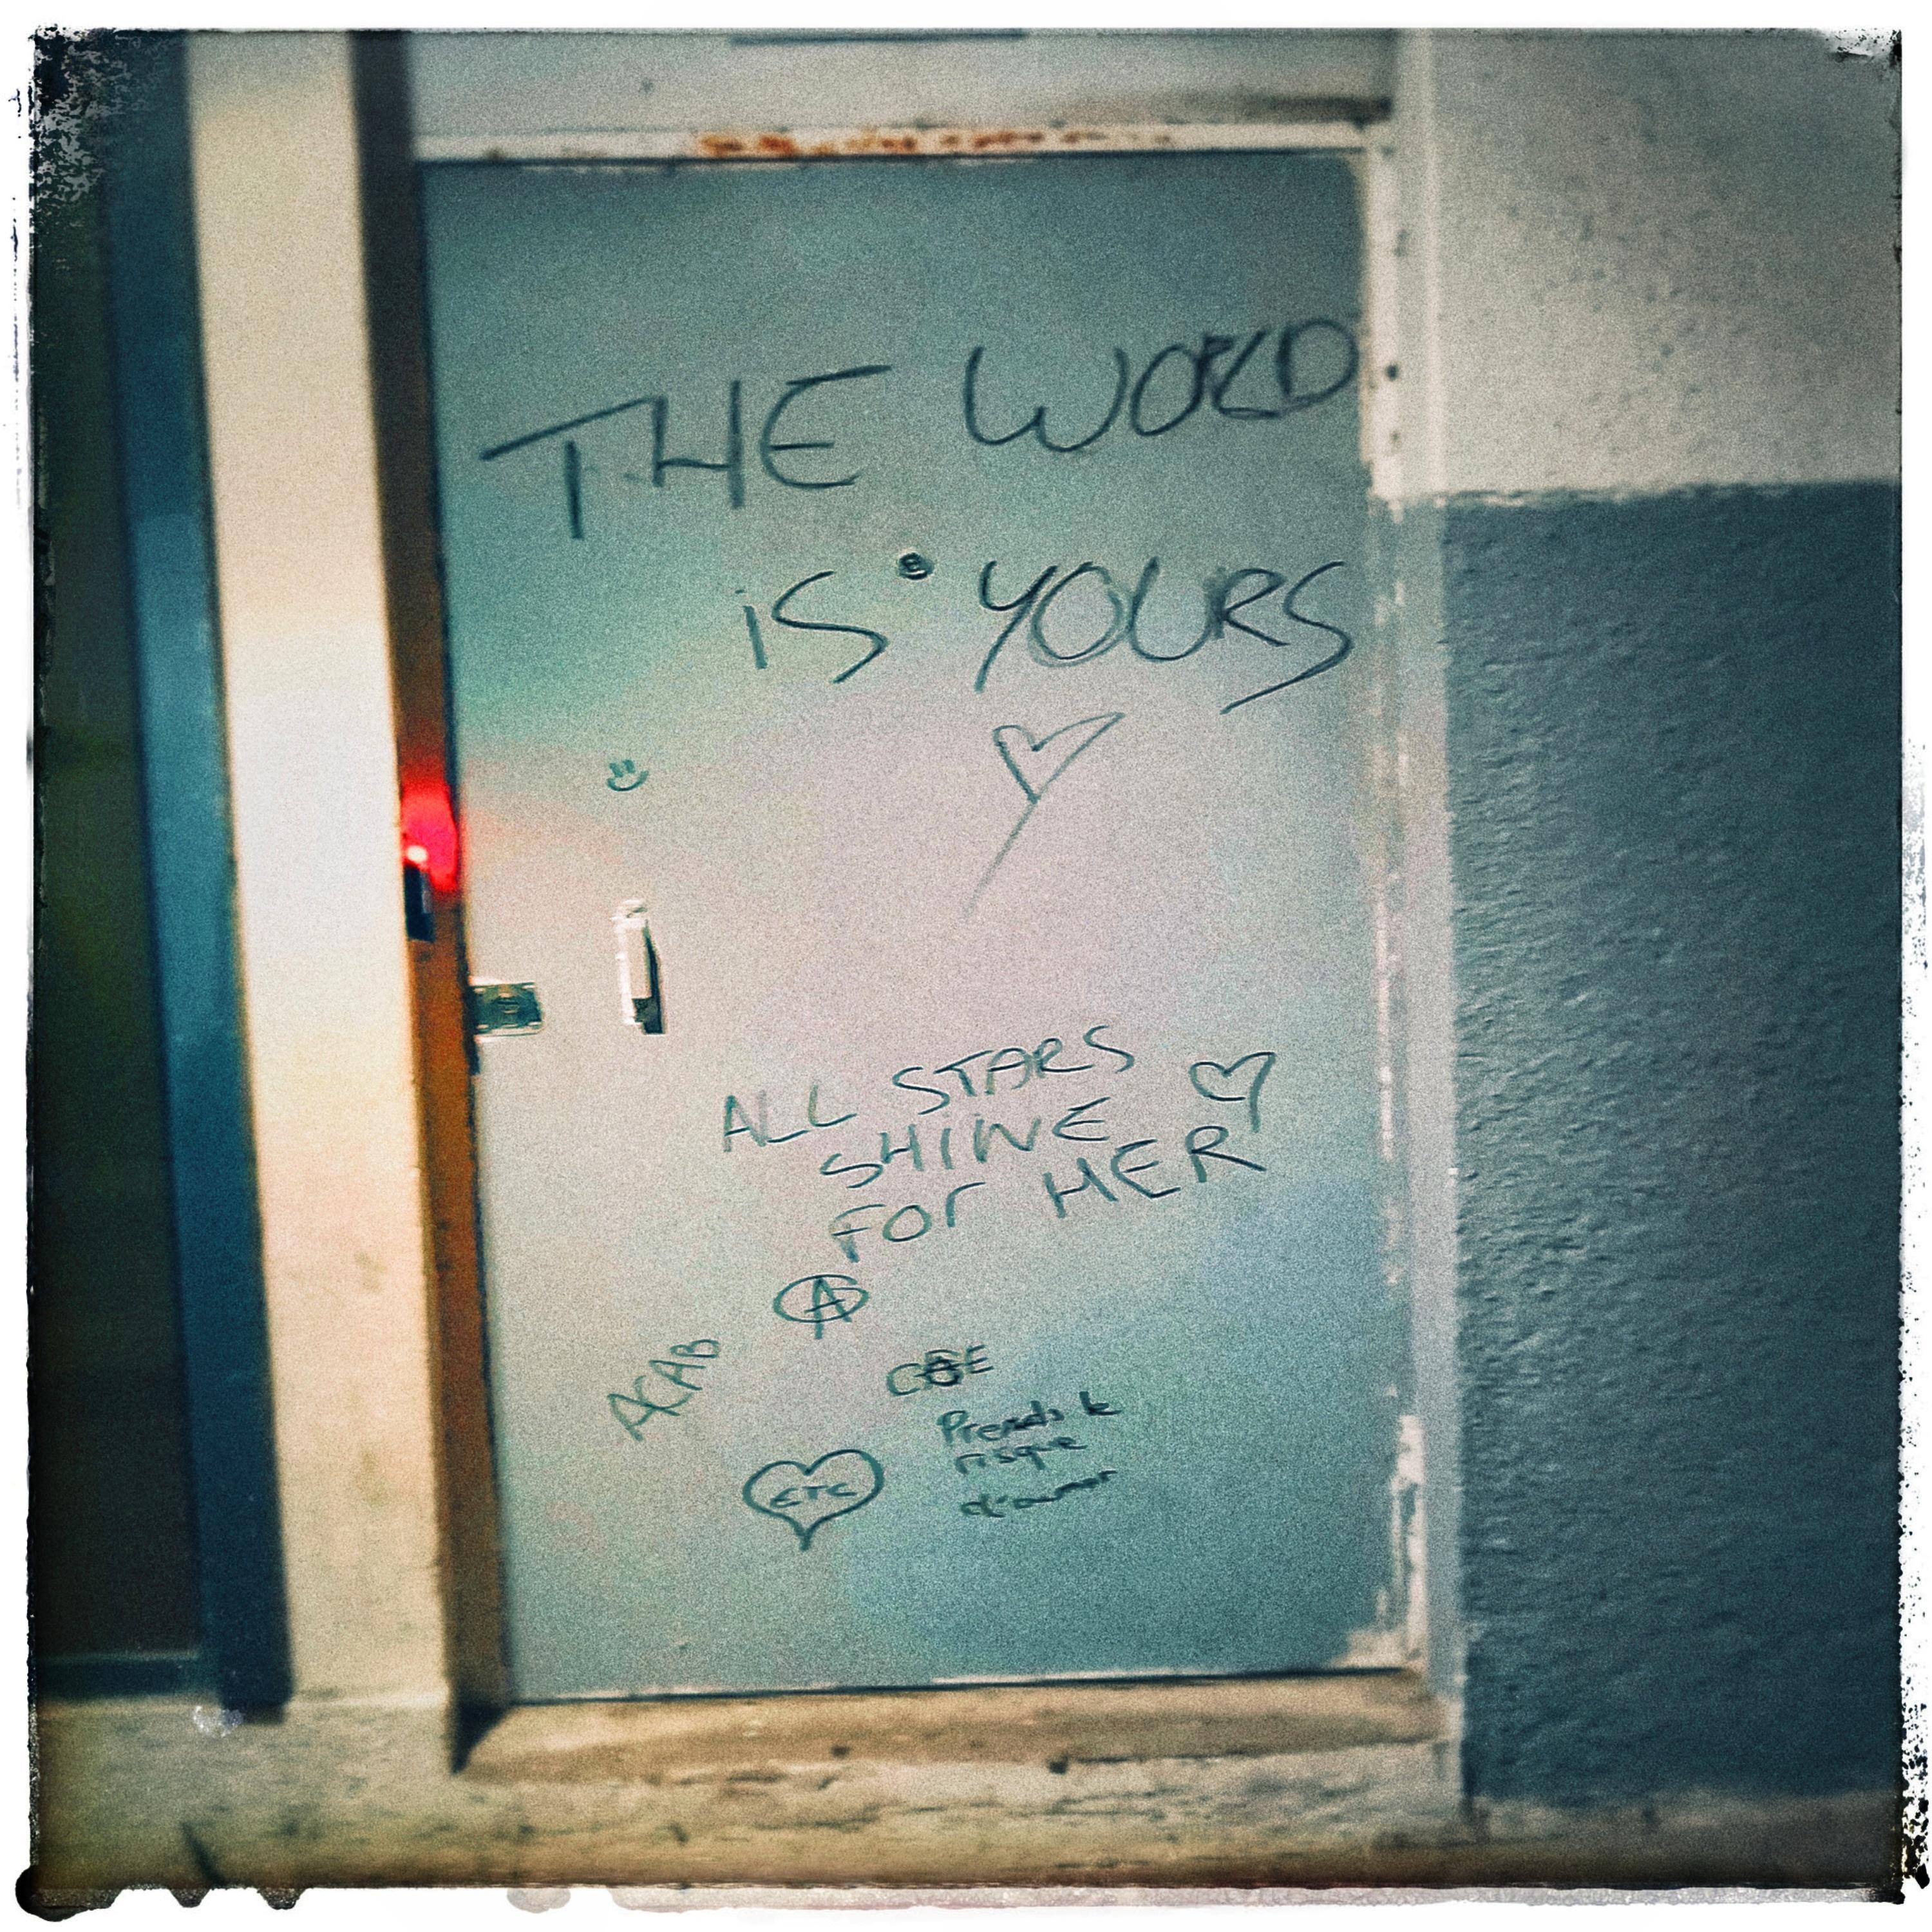 THE WORLD
iS YOURS
ALL STARS
SHINE
FOr HER
Ⓐ
ACAB
Prends le
risque
d'aimer